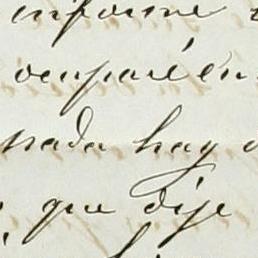 informe
ocuparé en
nada hay
que dije